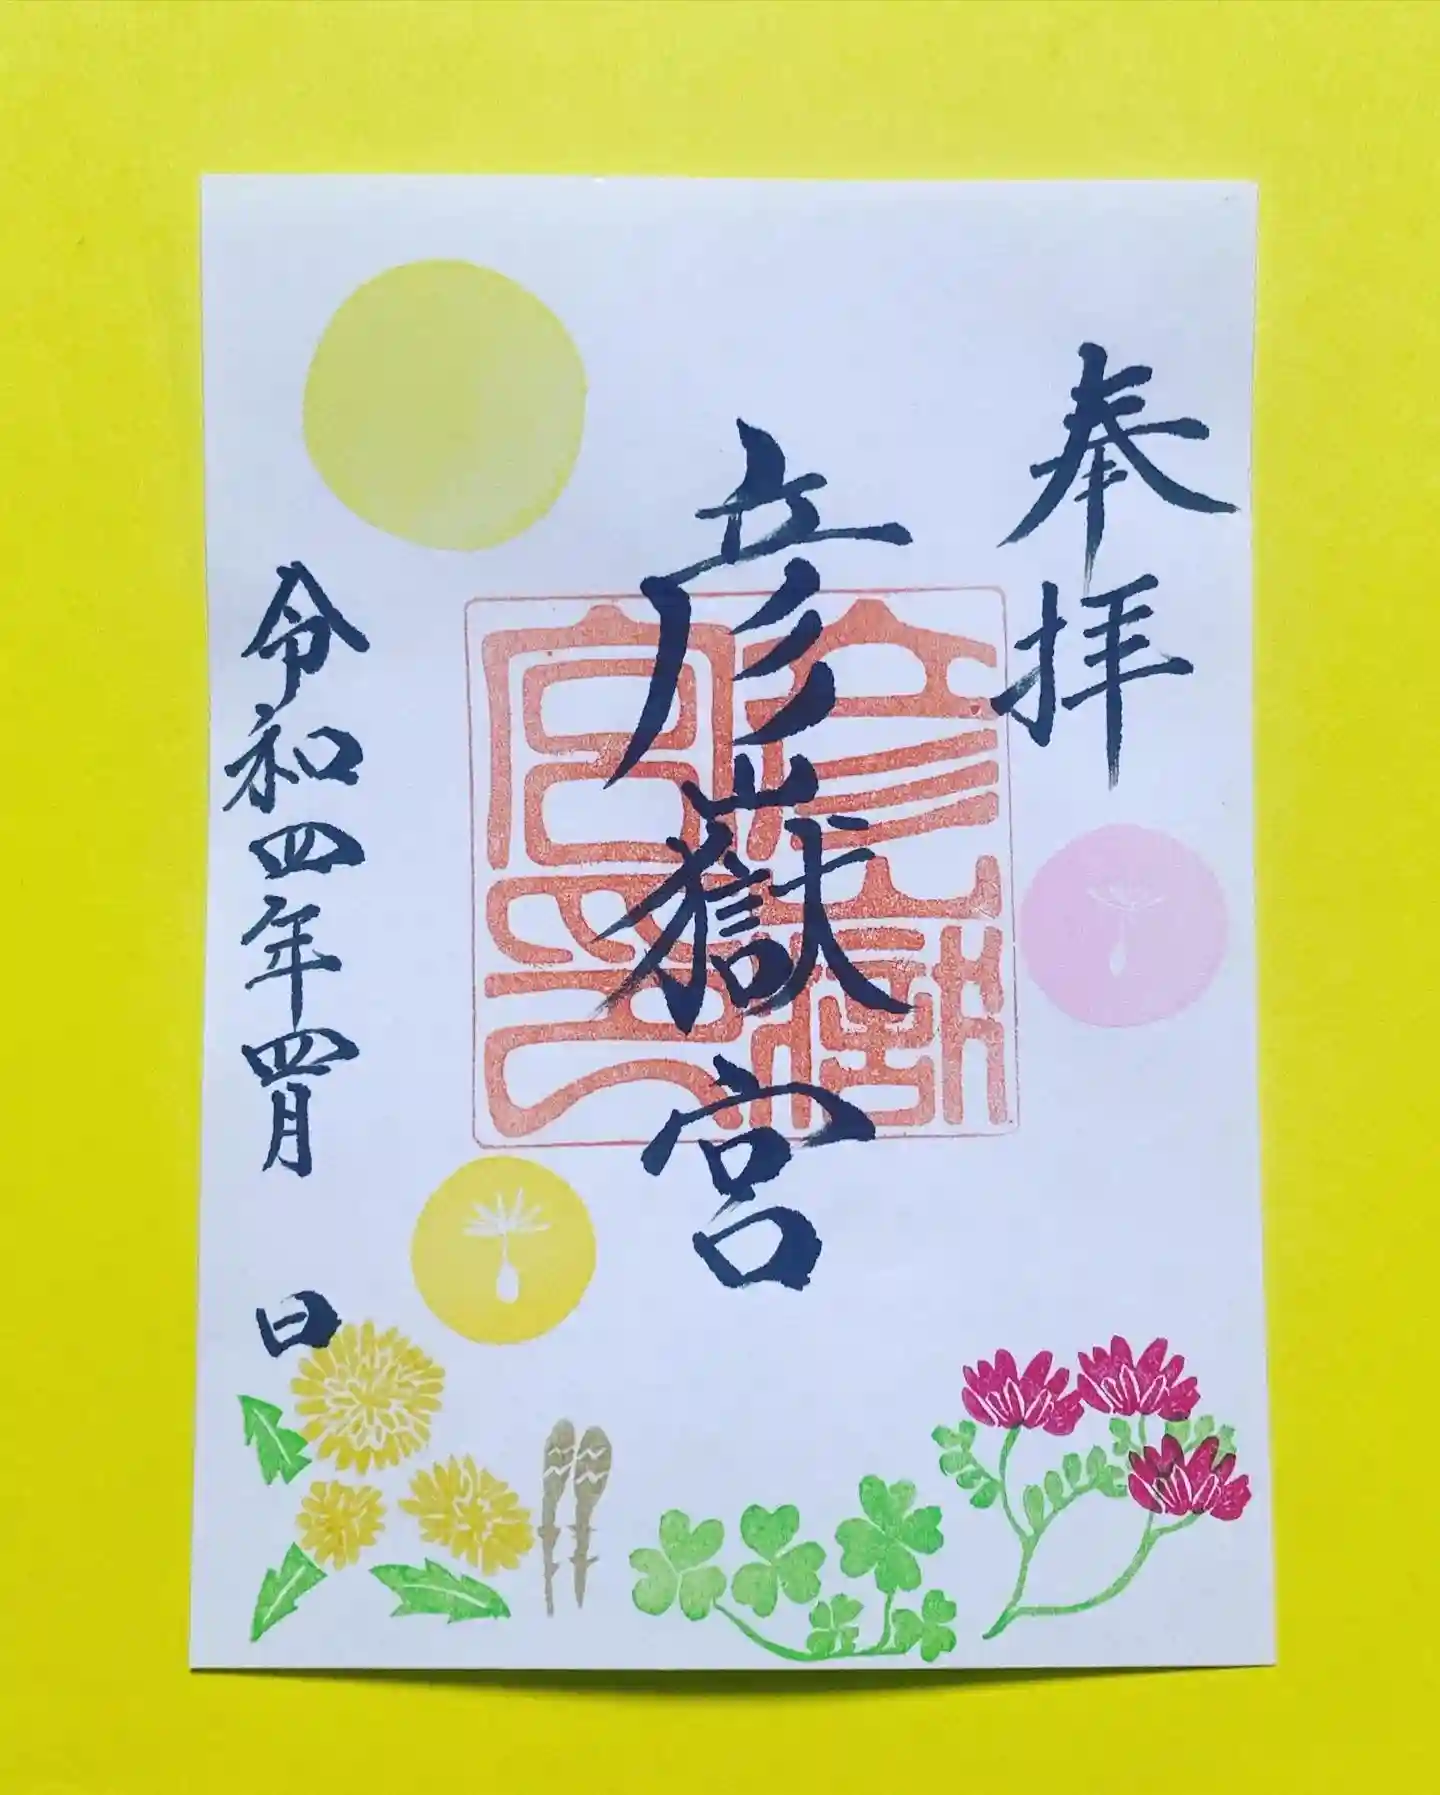 奉拝
彦嶽宮
彦嶽宮印
令和四年四月 日